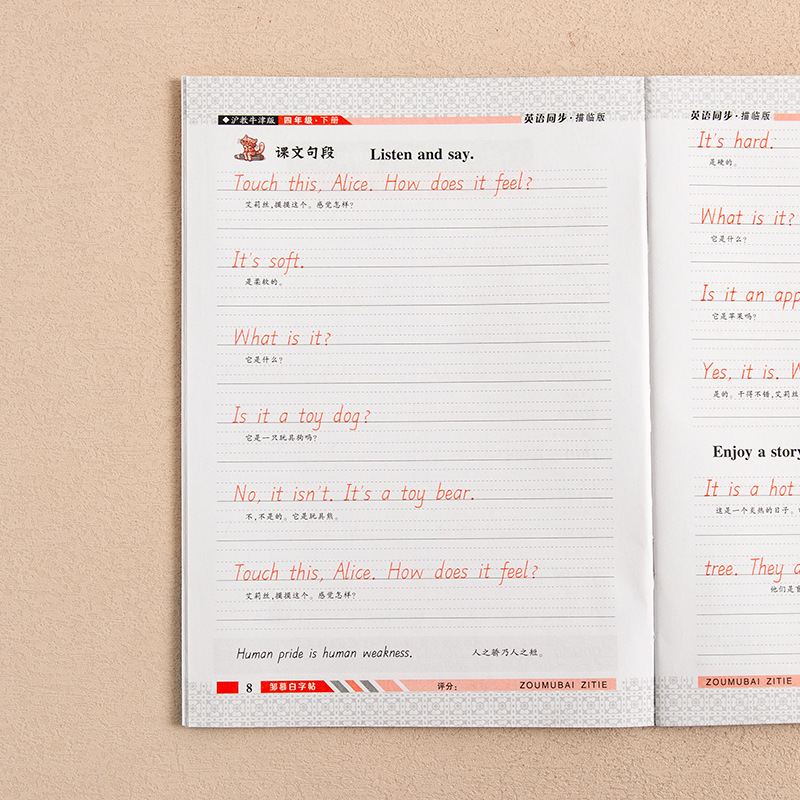 ◆沪教牛津版 四年级·下册 英语同步·描临版
课文句段 Listen and say.
Touch this, Alice. How does it feel?
艾莉丝,摸摸这个。感觉怎样?
It's soft.
是柔软的。
What is it?
它是什么?
Is it a toy dog?
它是一只玩具狗吗?
No, it isn't. It's a toy bear.
不,不是的。它是玩具熊。
Touch this, Alice. How does it feel?
艾莉丝,摸摸这个。感觉怎样?
Human pride is human weakness. 人之骄乃人之短。
8 邹慕白字帖 评分: ZOUMUBAI ZITIE
英语同步·描临版
It's hard.
是硬的。
What is it?
它是什么?
Is it an app
它是苹果吗?
Yes, it is. W
是的。干得不错,艾莉丝
Enjoy a story
It is a hot
这是一个炎热的日子。
tree. They a
他们是
ZOUMUBAI ZITIE